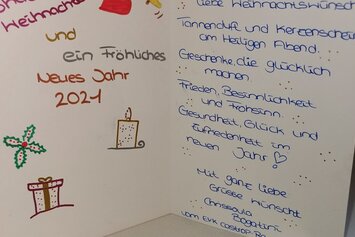 Weihnachten
und
ein Fröhliches
Neues Jahr
2021
liebe Weihnachtswünsche
Tannenduft und Kerzenschein
am Heiligen Abend.
Geschenke, die glücklich
machen.
Frieden, Besinnlichkeit
und Frohsinn.
Gesundheit, Glück und
Zufriedenheit im
neuen Jahr!
Mit ganz liebe
Grüsse wünscht
vom EvK Castrop